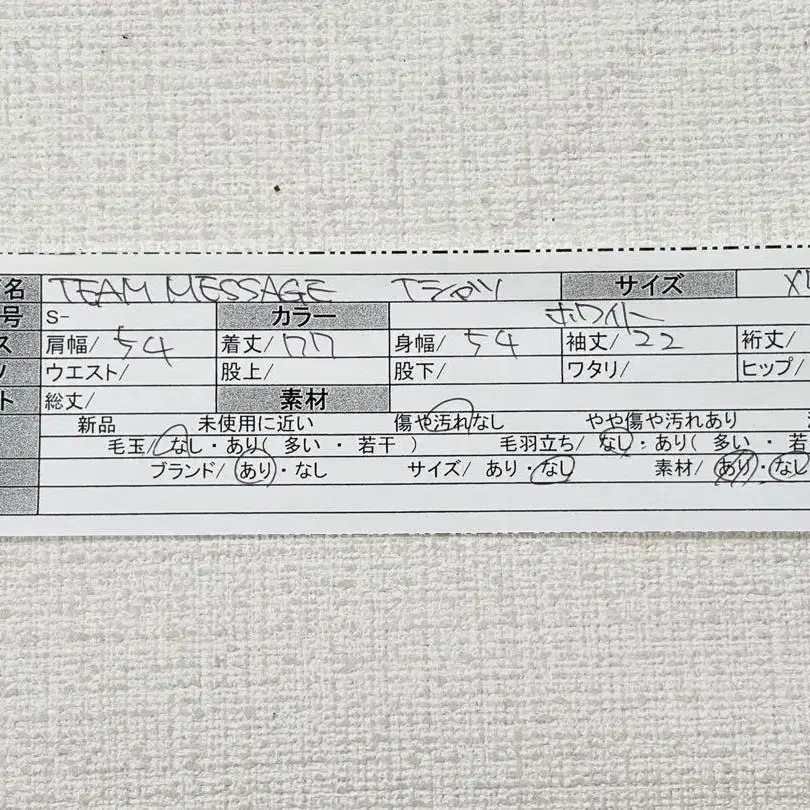 名 TEAM MESSAGE Tシャツ サイズ
号 S- カラー ホワイト
ス 肩幅/ 54 着丈/ 77 身幅/ 54 袖丈/ 22 裄丈/
ウエスト/ 股上/ 股下/ ワタリ/ ヒップ/
ト 総丈/ 素材
新品 未使用に近い 傷や汚れなし やや傷や汚れあり
毛玉/ なし・あり( 多い ・ 若干 ) 毛羽立ち/ なし・あり( 多い ・ 若
ブランド/ あり・なし サイズ/ あり・なし 素材/ あり・なし